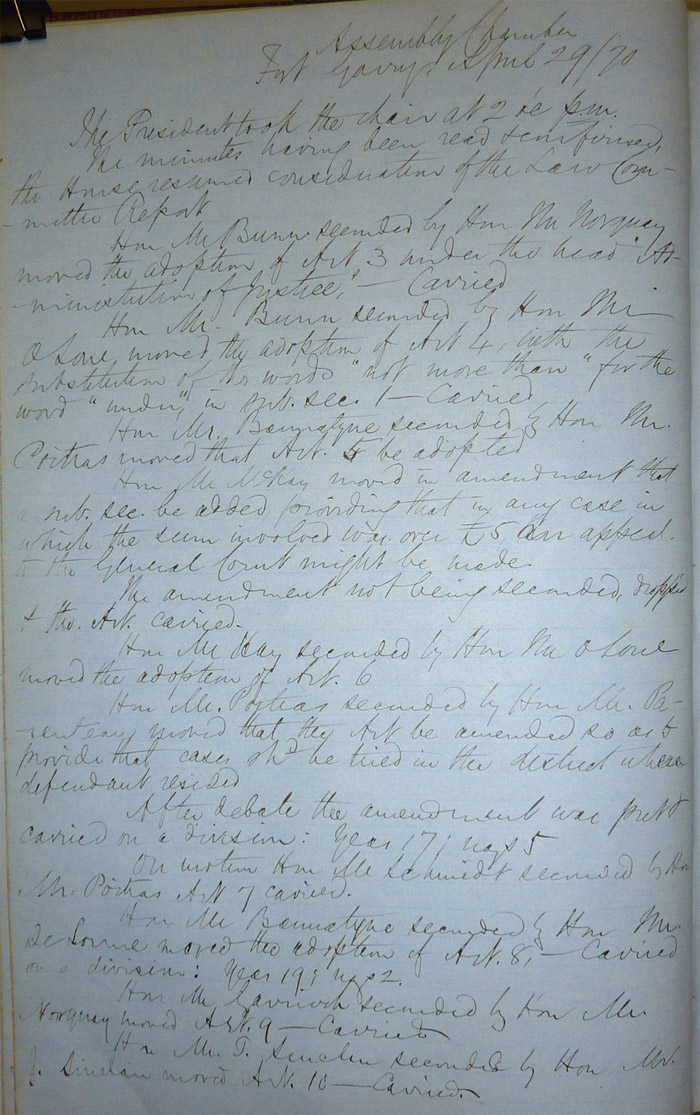 Assembly Chamber
Fort Garry April 29/70
The President took the chair at 2 o'c p.m.
The minutes having been read & confirmed,
the House resumed consideration of the Law Com-
-mittee Report
Hon Mr Bunn seconded by Hon Mr Norquay
moved the adoption of Art 3 under the head "Ad-
-ministration of Justice," – Carried
Hon Mr. Bunn seconded by Hon Mr
O Lone, moved the adoption of Art 4, with the
substitution of the words "not more than" for the
word "under," in sub. sec. 1 – Carried
Hon Mr. Bannatyne seconded by Hon Mr.
Poitras moved that Art. 5 be adopted
Hon Mr McKay moved in amendment that
a sub. sec. be added providing that in any case in
which the sum involved was over £5, an appeal
to the General Court might be made.
The amendment not being seconded, dropped
& the Art. carried.
Hon Mr Kay seconded by Hon Mr O Lone
moved the adoption of Art. 6
Hon Mr. Poitras seconded by Hon Mr. Pa-
renteau, moved that the Art be amended so as to
provide that cases shd be tried in the district where
defendant resided
After debate the amendment was put &
carried on a division: Yeas 17; nays 5
On motion Hon Mr Schmidt seconded by Hon
Mr. Poitras Art 7 carried.
Hon Mr Bannatyne seconded by Hon Mr
De Lorme moved the adoption of Art. 8, – Carried
on a division: Yeas 19; nays 2.
Hon Mr Garrioch seconded by Hon Mr.
Norquay moved Art. 9 – Carried
Hon Mr. T. Sinclair seconded by Hon Mr.
J. Sinclair moved Art 10 – Carried.